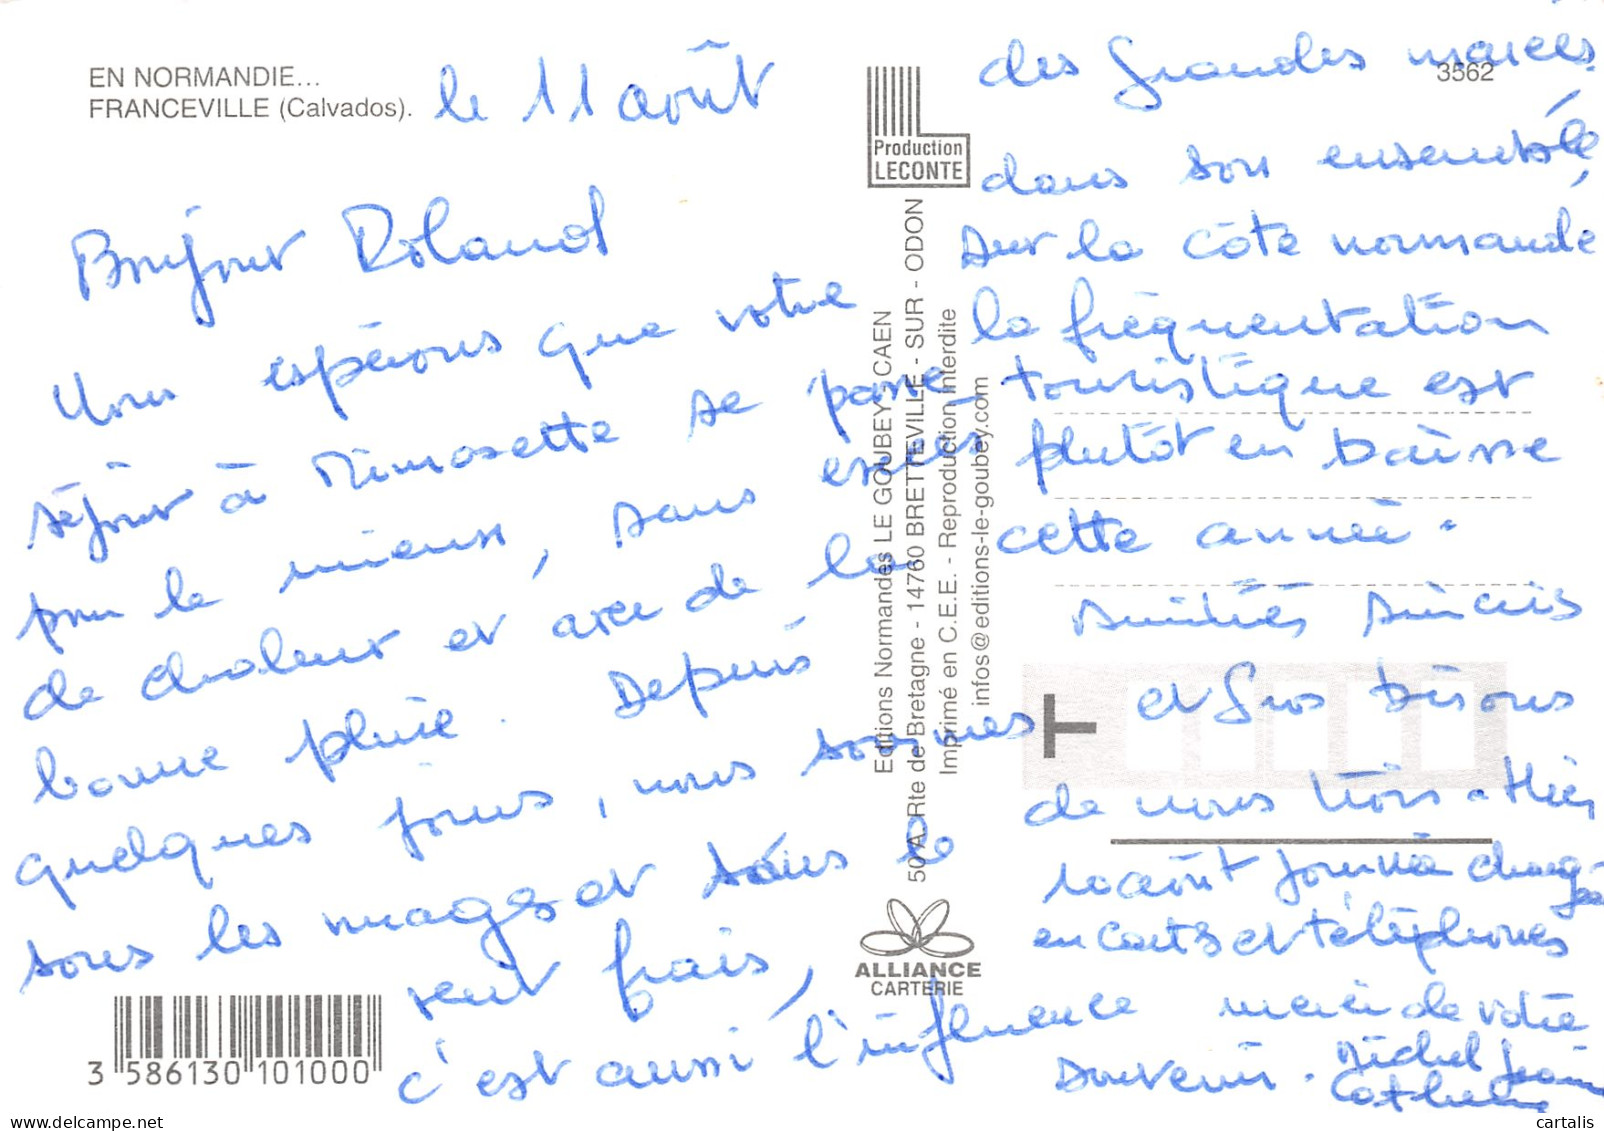 EN NORMANDIE...
FRANCEVILLE (Calvados).
le 11 août
Bonjour Roland
Nous espérons que votre
séjour à Mimosette se passe
pour le mieux, sans excès
de chaleur et avec de la
bonne pluie. Depuis
quelques jours, nous sommes
sous les nuages et sous le
vent frais,
c'est aussi l'influence
3 586130 101000
Production
LECONTE
Editions Normandes LE GOUBEY - CAEN
50 A, Rte de Bretagne - 14760 BRETTEVILLE - SUR - ODON
Imprimé en C.E.E. - Reproduction interdite
infos@editions-le-goubey.com
ALLIANCE
CARTERIE
3562
des grandes marées.
dans son ensemble
sur la côte normande,
la fréquentation
touristique est
plutôt en baisse
cette année.
Amitiés sincères
T
et gros bisous
de nous trois - Hier
10 août journée chargée
en carts et téléphones
merci de votre
souvenir. Michel Jean
Catherine
delcampe.net
cartalis